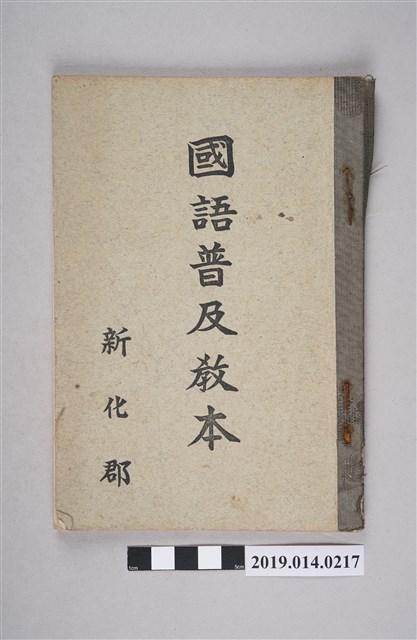 國語普及教本
新化郡
1cm
5cm
2019.014.0217